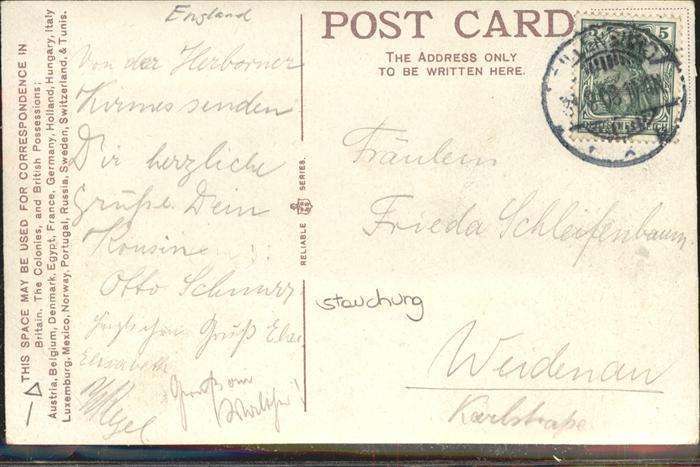 England
Von der Herborner
Kirmes senden
Dir herzliche
Grüße Dein
Kousin
Otto Schnurr
Gruß
Elisabeth
POST CARD
THE ADDRESS ONLY
TO BE WRITTEN HERE.
5
Fräulein
Frieda Schleifenbaum
stauchung
Weidenau
Karlstraße
RELIABLE SERIES.
THIS SPACE MAY BE USED FOR CORRESPONDENCE IN
Britain, The Colonies, and British Possessions;
Austria, Belgium, Denmark, Egypt, France, Germany, Holland, Hungary, Italy
Luxemburg, Mexico, Norway, Portugal, Russia, Sweden, Switzerland, & Tunis.